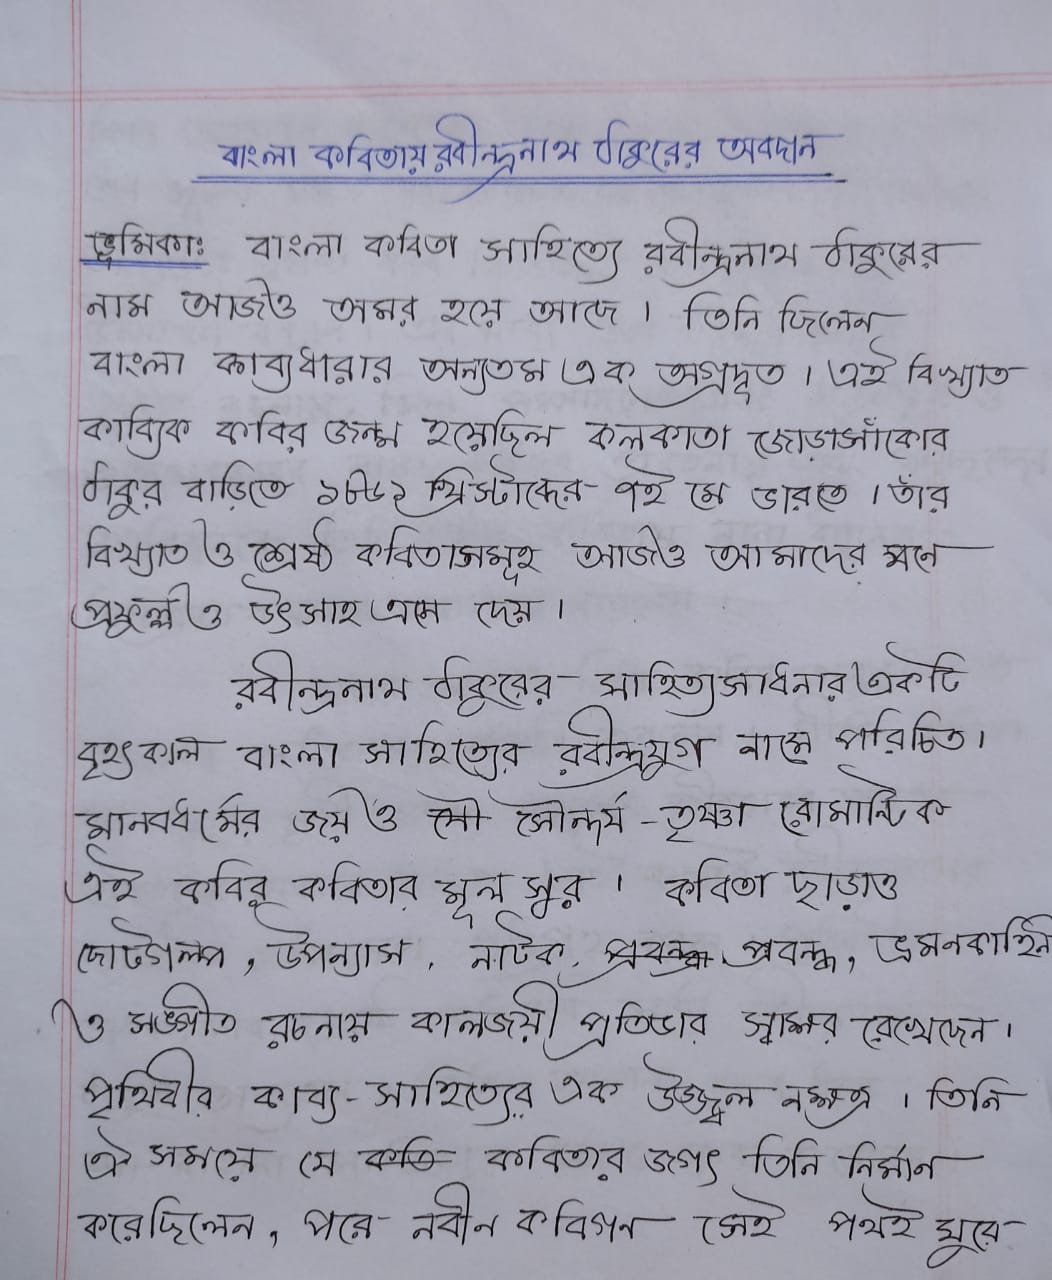 বাংলা কবিতায় রবীন্দ্রনাথ ঠাকুরের অবদান
ভূমিকাঃ বাংলা কবিতা সাহিত্যে রবীন্দ্রনাথ ঠাকুরের
নাম আজও অমর হয়ে আছে। তিনি ছিলেন
বাংলা কাব্যধারার অন্যতম এক অগ্রদূত। এই বিখ্যাত
কাব্যিক কবির জন্ম হয়েছিল কলকাতা জোড়াসাঁকোর
ঠাকুর বাড়িতে ১৮৬১ খ্রিস্টাব্দের ৭ই মে ভারতে। তাঁর
বিখ্যাত ও শ্রেষ্ঠ কবিতাসমূহ আজও আমাদের মনে
প্রফুল্ল ও উৎসাহ এনে দেয়।
রবীন্দ্রনাথ ঠাকুরের সাহিত্যসাধনার একটি
বৃহৎকাল বাংলা সাহিত্যের রবীন্দ্রযুগ নামে পরিচিত।
মানবধর্মের জয় ও সৌন্দর্য-তৃষ্ণা রোমান্টিক
এই কবির কবিতার মূল সুর। কবিতা ছাড়াও
ছোটগল্প, উপন্যাস, নাটক, প্রবন্ধ, ভ্রমনকাহিনি
ও সঙ্গীত রচনায় কালজয়ী প্রতিভার স্বাক্ষর রেখেছেন।
পৃথিবীর কাব্য-সাহিত্যের এক উজ্জ্বল নক্ষত্র। তিনি
ঐ সময়ে যে কবিতার জগৎ তিনি নির্মান
করেছিলেন, পরে নবীন কবিগন সেই পথই ঘুরে